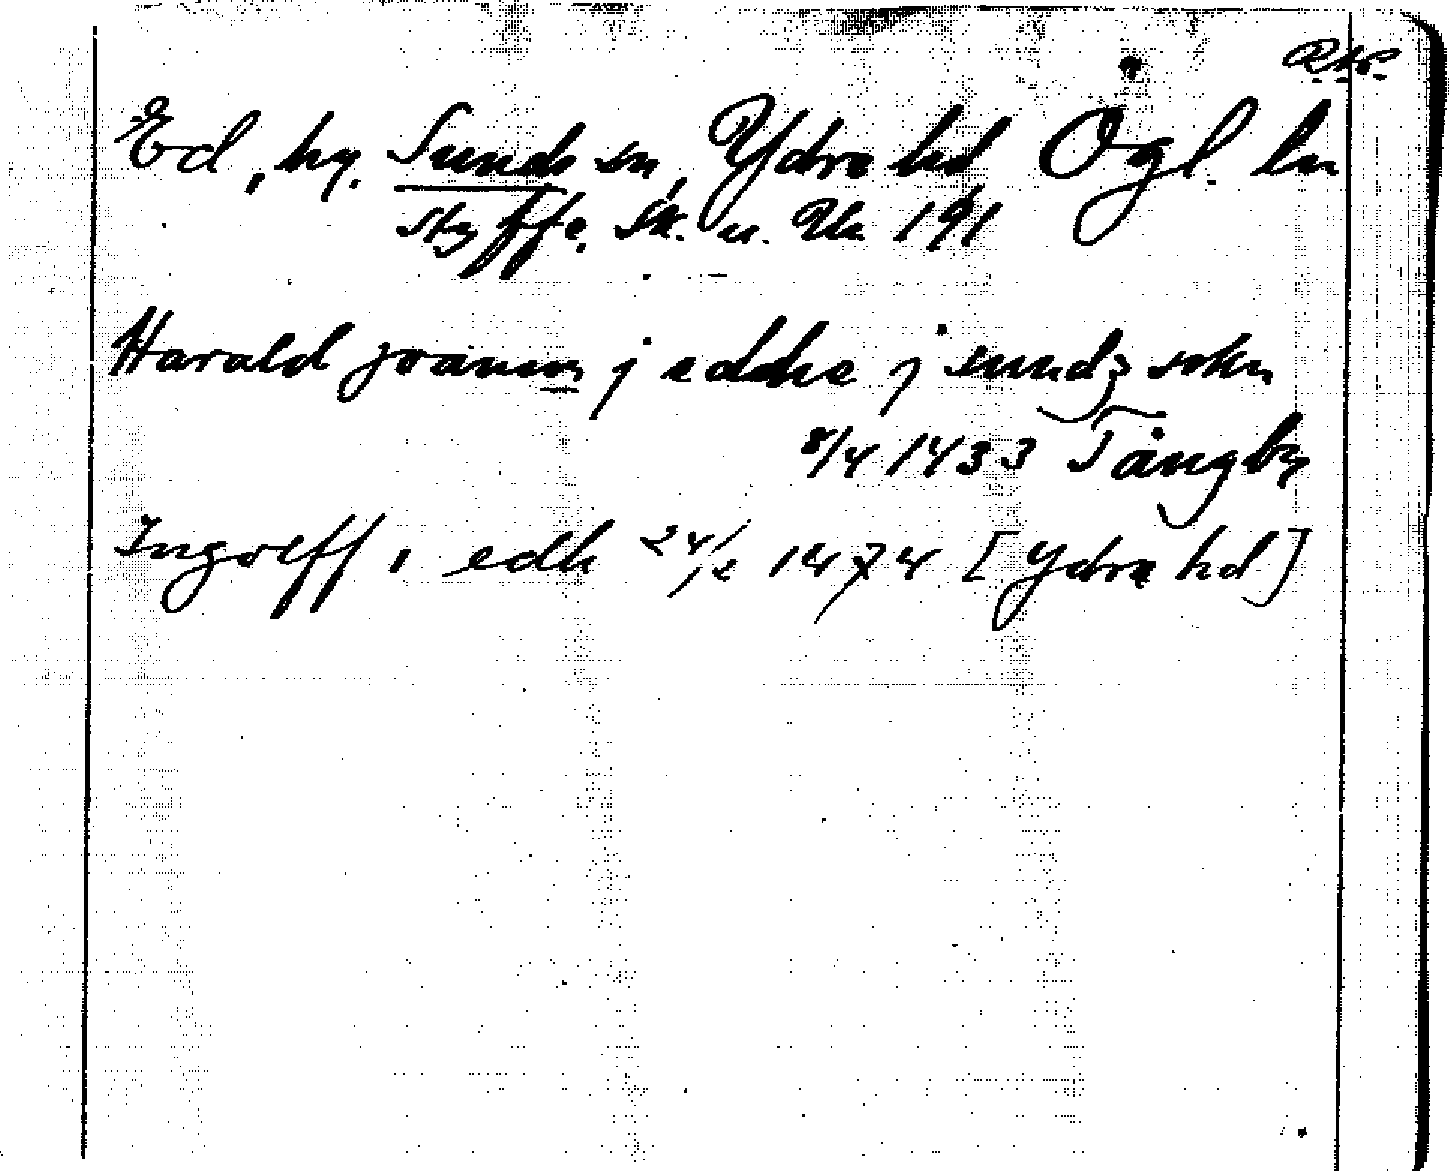 Ed, by. Sunds sn, Ydre hd, Ögl. ln
Styffe, Sk. u. Un 191
Harald joansson j edhe j sundz sokn
8/4 1433 Tångby
Ingolff i edh 24/2 1474 [Ydre hd]